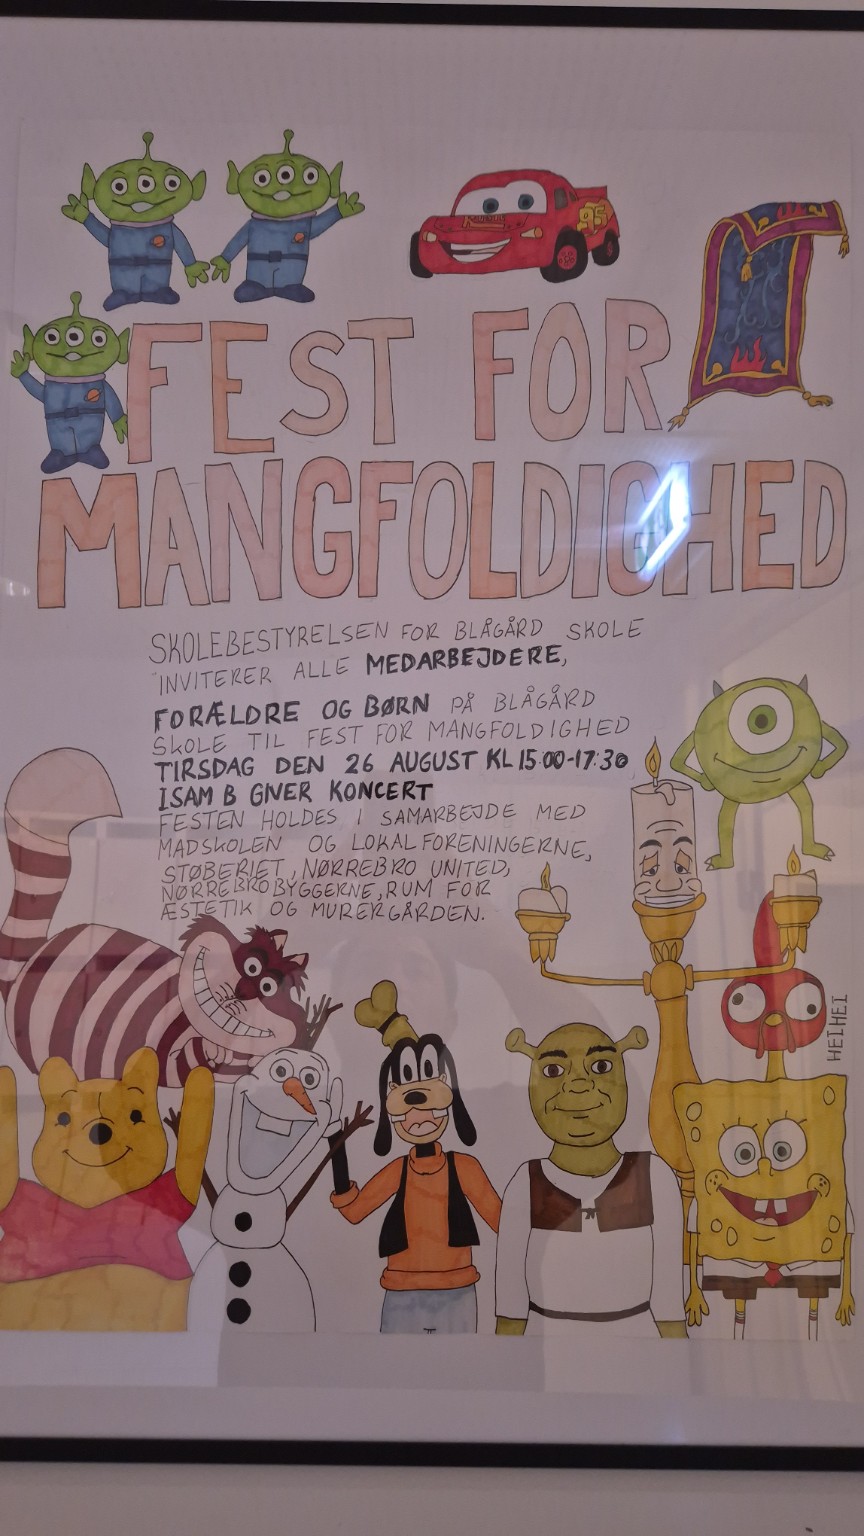 FEST FOR
MANGFOLDIGHED
SKOLEBESTYRELSEN FOR BLÅGÅRD SKOLE
INVITERER ALLE MEDARBEJDERE,
FORÆLDRE OG BØRN PÅ BLÅGÅRD
SKOLE TIL FEST FOR MANGFOLDIGHED
TIRSDAG DEN 26 AUGUST KL 15:00-17:30
ISAM B GIVER KONCERT
FESTEN HOLDES I SAMARBEJDE MED
MADSKOLEN OG LOKALFORENINGERNE,
STØBERIET, NØRREBRO UNITED,
NØRREBROBYGGERNE, RUM FOR
ÆSTETIK OG MURERGÅRDEN.
95
HEIHEI